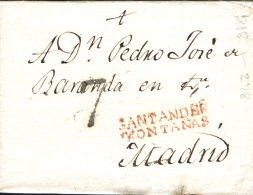 A Dⁿ Pedro José de
Baranda en
7
SANTANDER
MONTAÑAS
Madrid